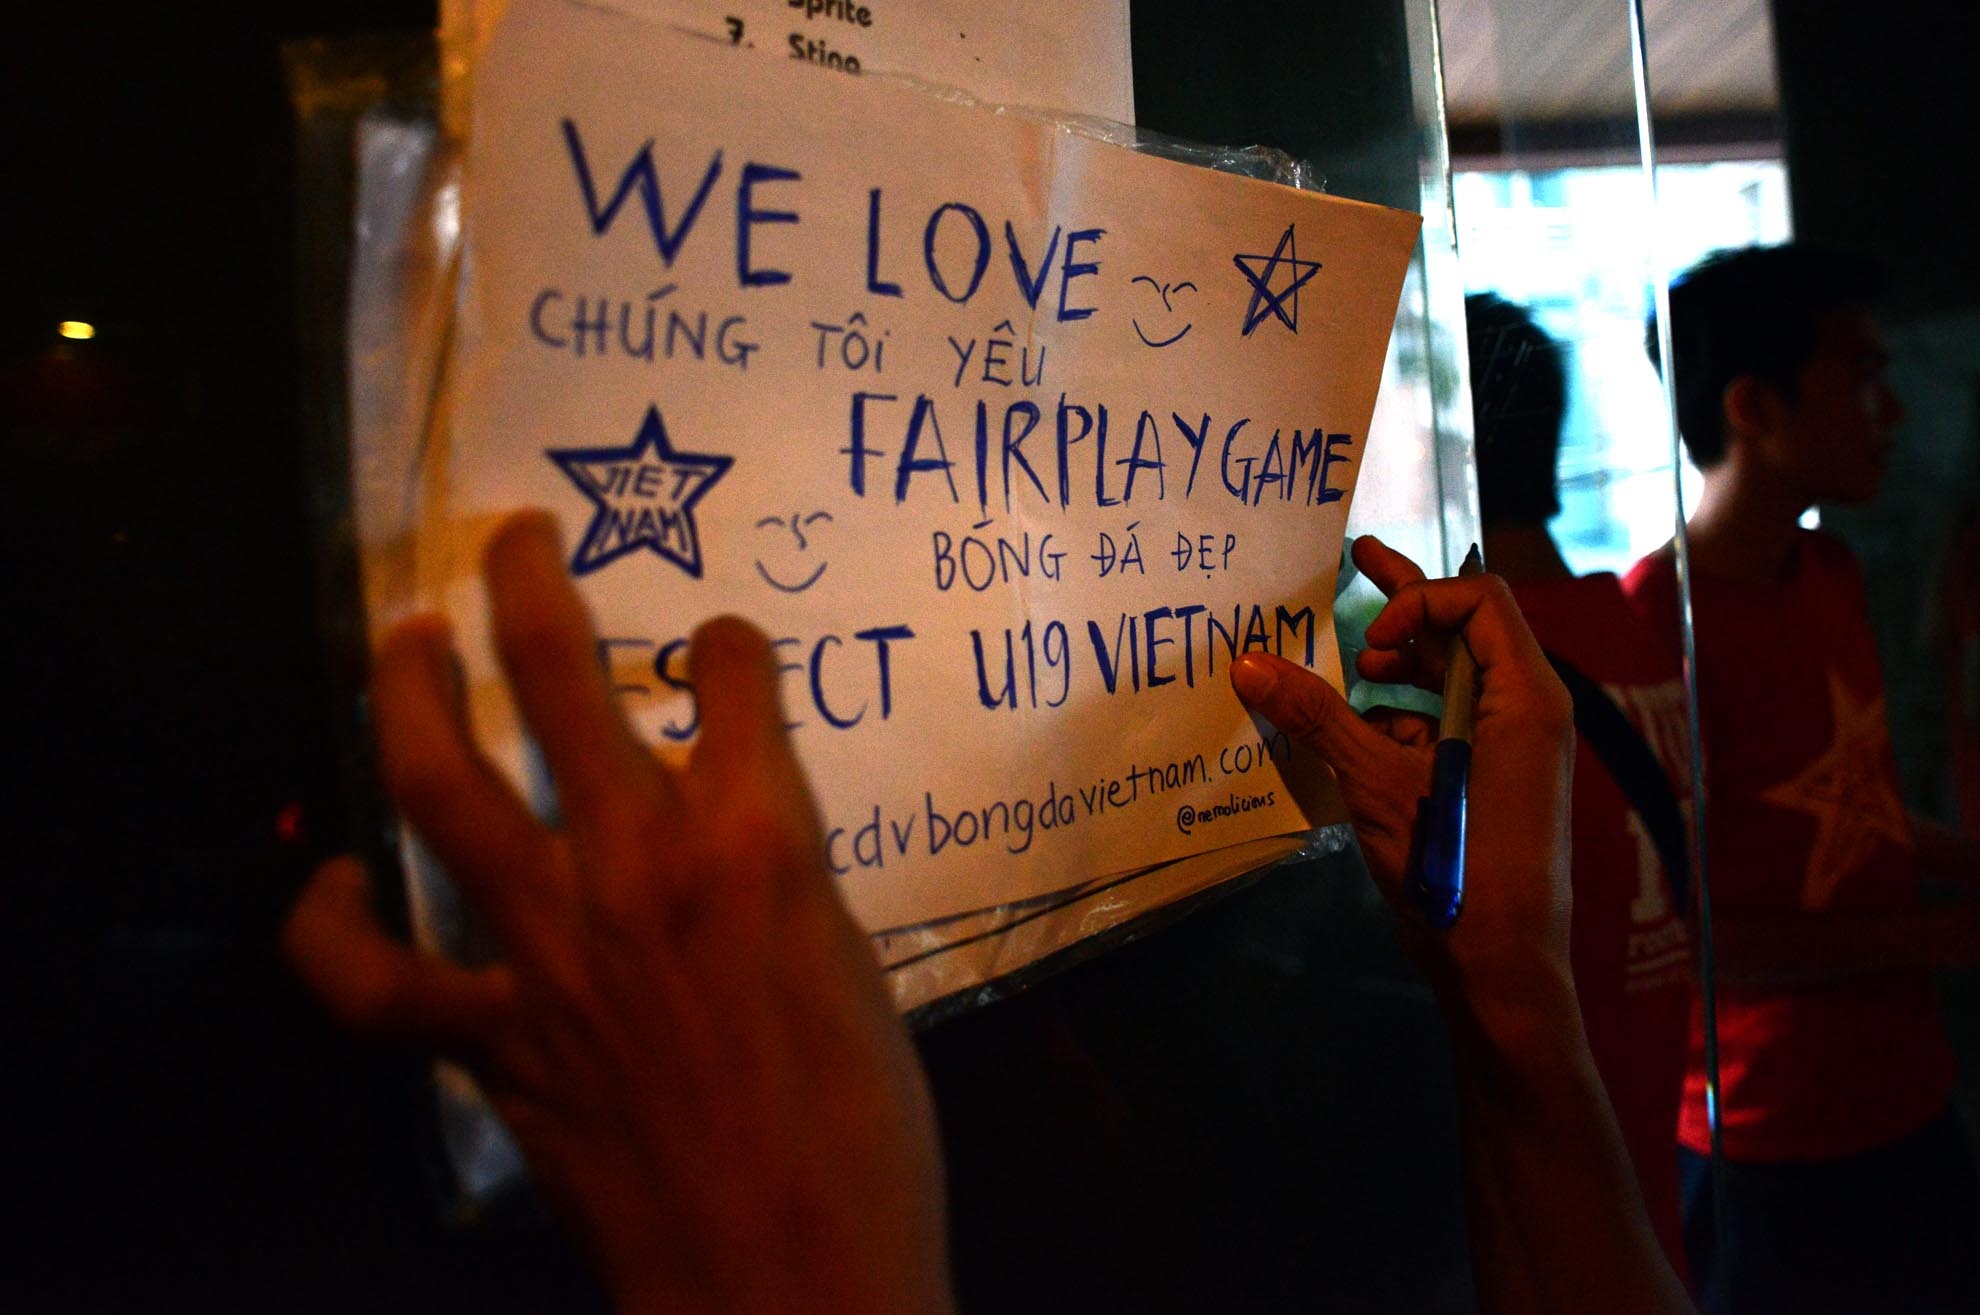 Sprite
7. Sting
WE LOVE
CHÚNG TÔI YÊU
FAIRPLAY GAME
VIET
NAM
BÓNG ĐÁ ĐẸP
RESPECT U19 VIETNAM
cdvbongdavietnam.com
@nemolicious